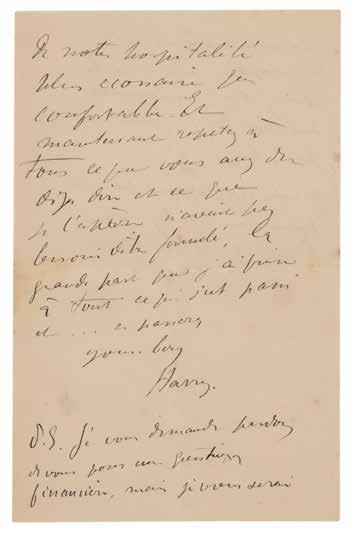 de notre hospitalité
plus ecossaise que
confortable. Et
maintenant repetez à
tous ce que vous avez du
déja dire et ce que
je l'espère n'avait pas
besoin d'être formulé, la
grande part que j'ai prise
à tout ce qui s'est passé
et ... se passera
yours
Harry.
P.S. Je vous demande pardon
de vous poser une question
financière, mais je vous serai